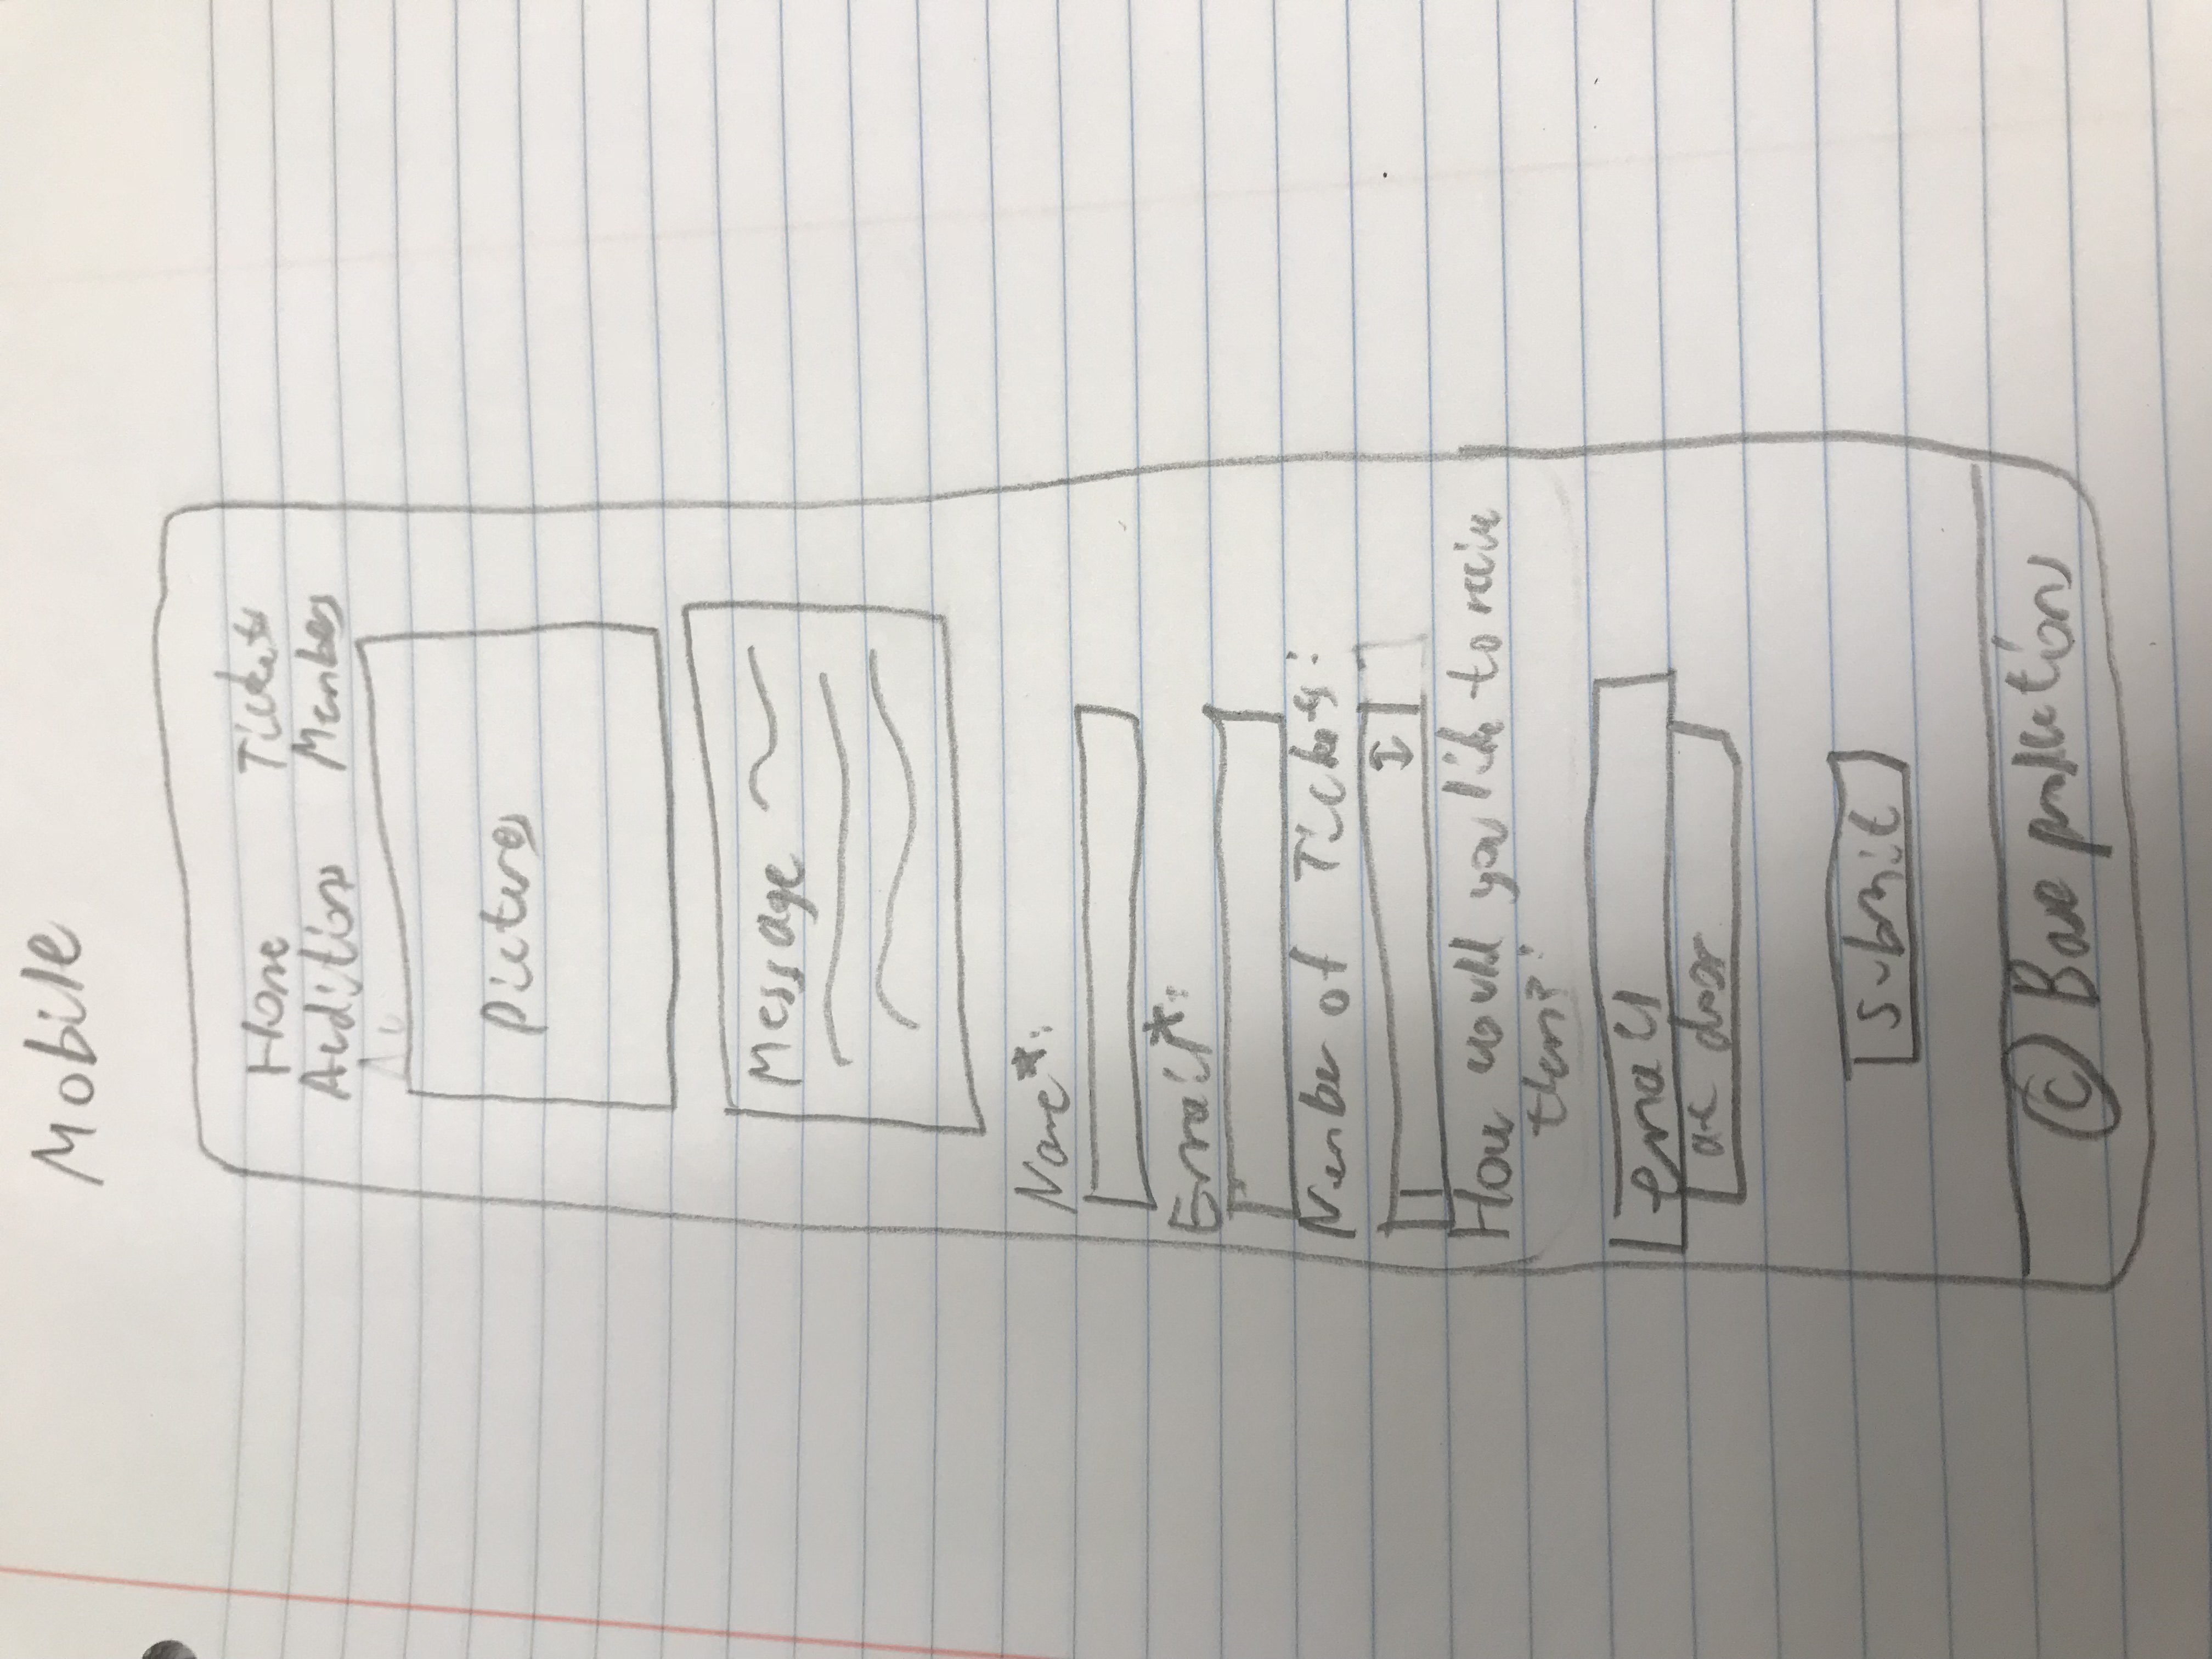 Mobile
Home Tickets
Auditions Members
Au
Pictures
Message
Name*:
Email*:
Number of Tickets:
1
How would you like to recive
them?:
email
at door
submit
© Base productions